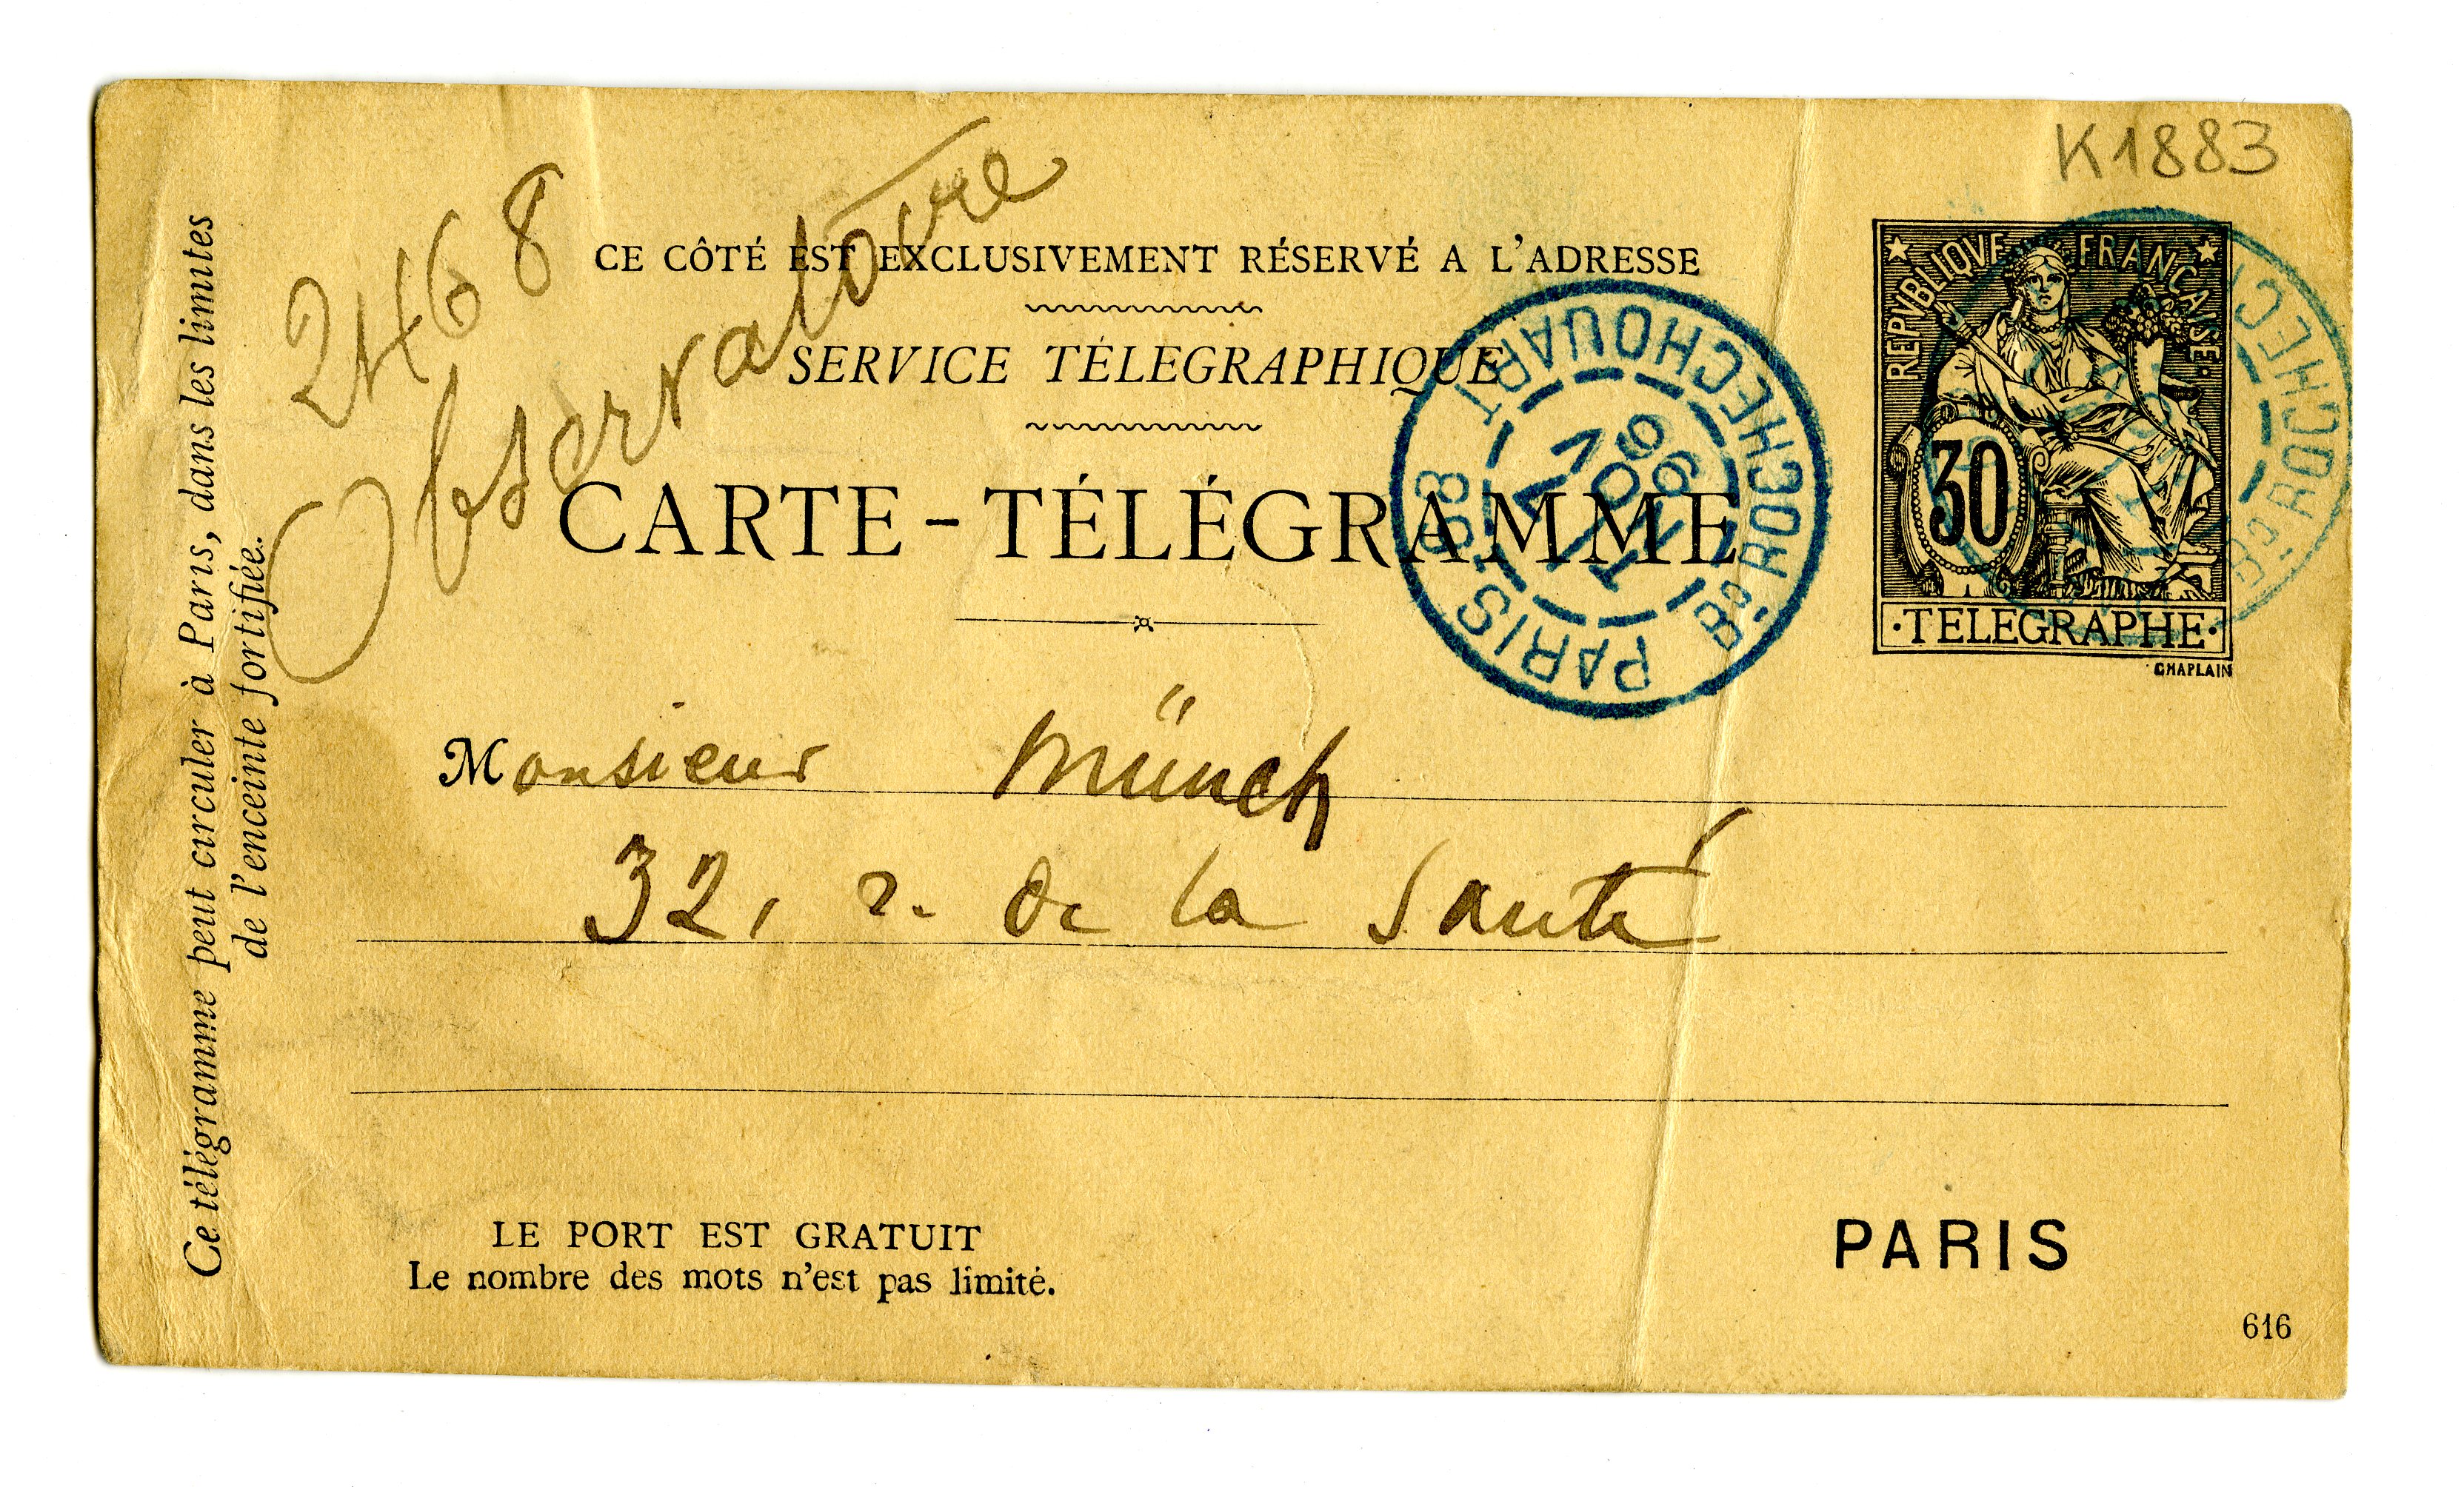 K1883
2468
Observatoire
CE CÔTÉ EST EXCLUSIVEMENT RÉSERVÉ A L'ADRESSE
SERVICE TÉLEGRAPHIQUE
CARTE-TÉLÉGRAMME
REPVBLIQVE FRANCAISE
30
·TELEGRAPHE·
CHAPLAIN
PARIS 68 Bᴰ ROCHECHOUART
Bᴰ ROCHEC
Monsieur Münch
32, r. de la Santé
LE PORT EST GRATUIT
Le nombre des mots n'est pas limité.
PARIS
616
Ce télégramme peut circuler à Paris, dans les limites
de l'enceinte fortifiée.